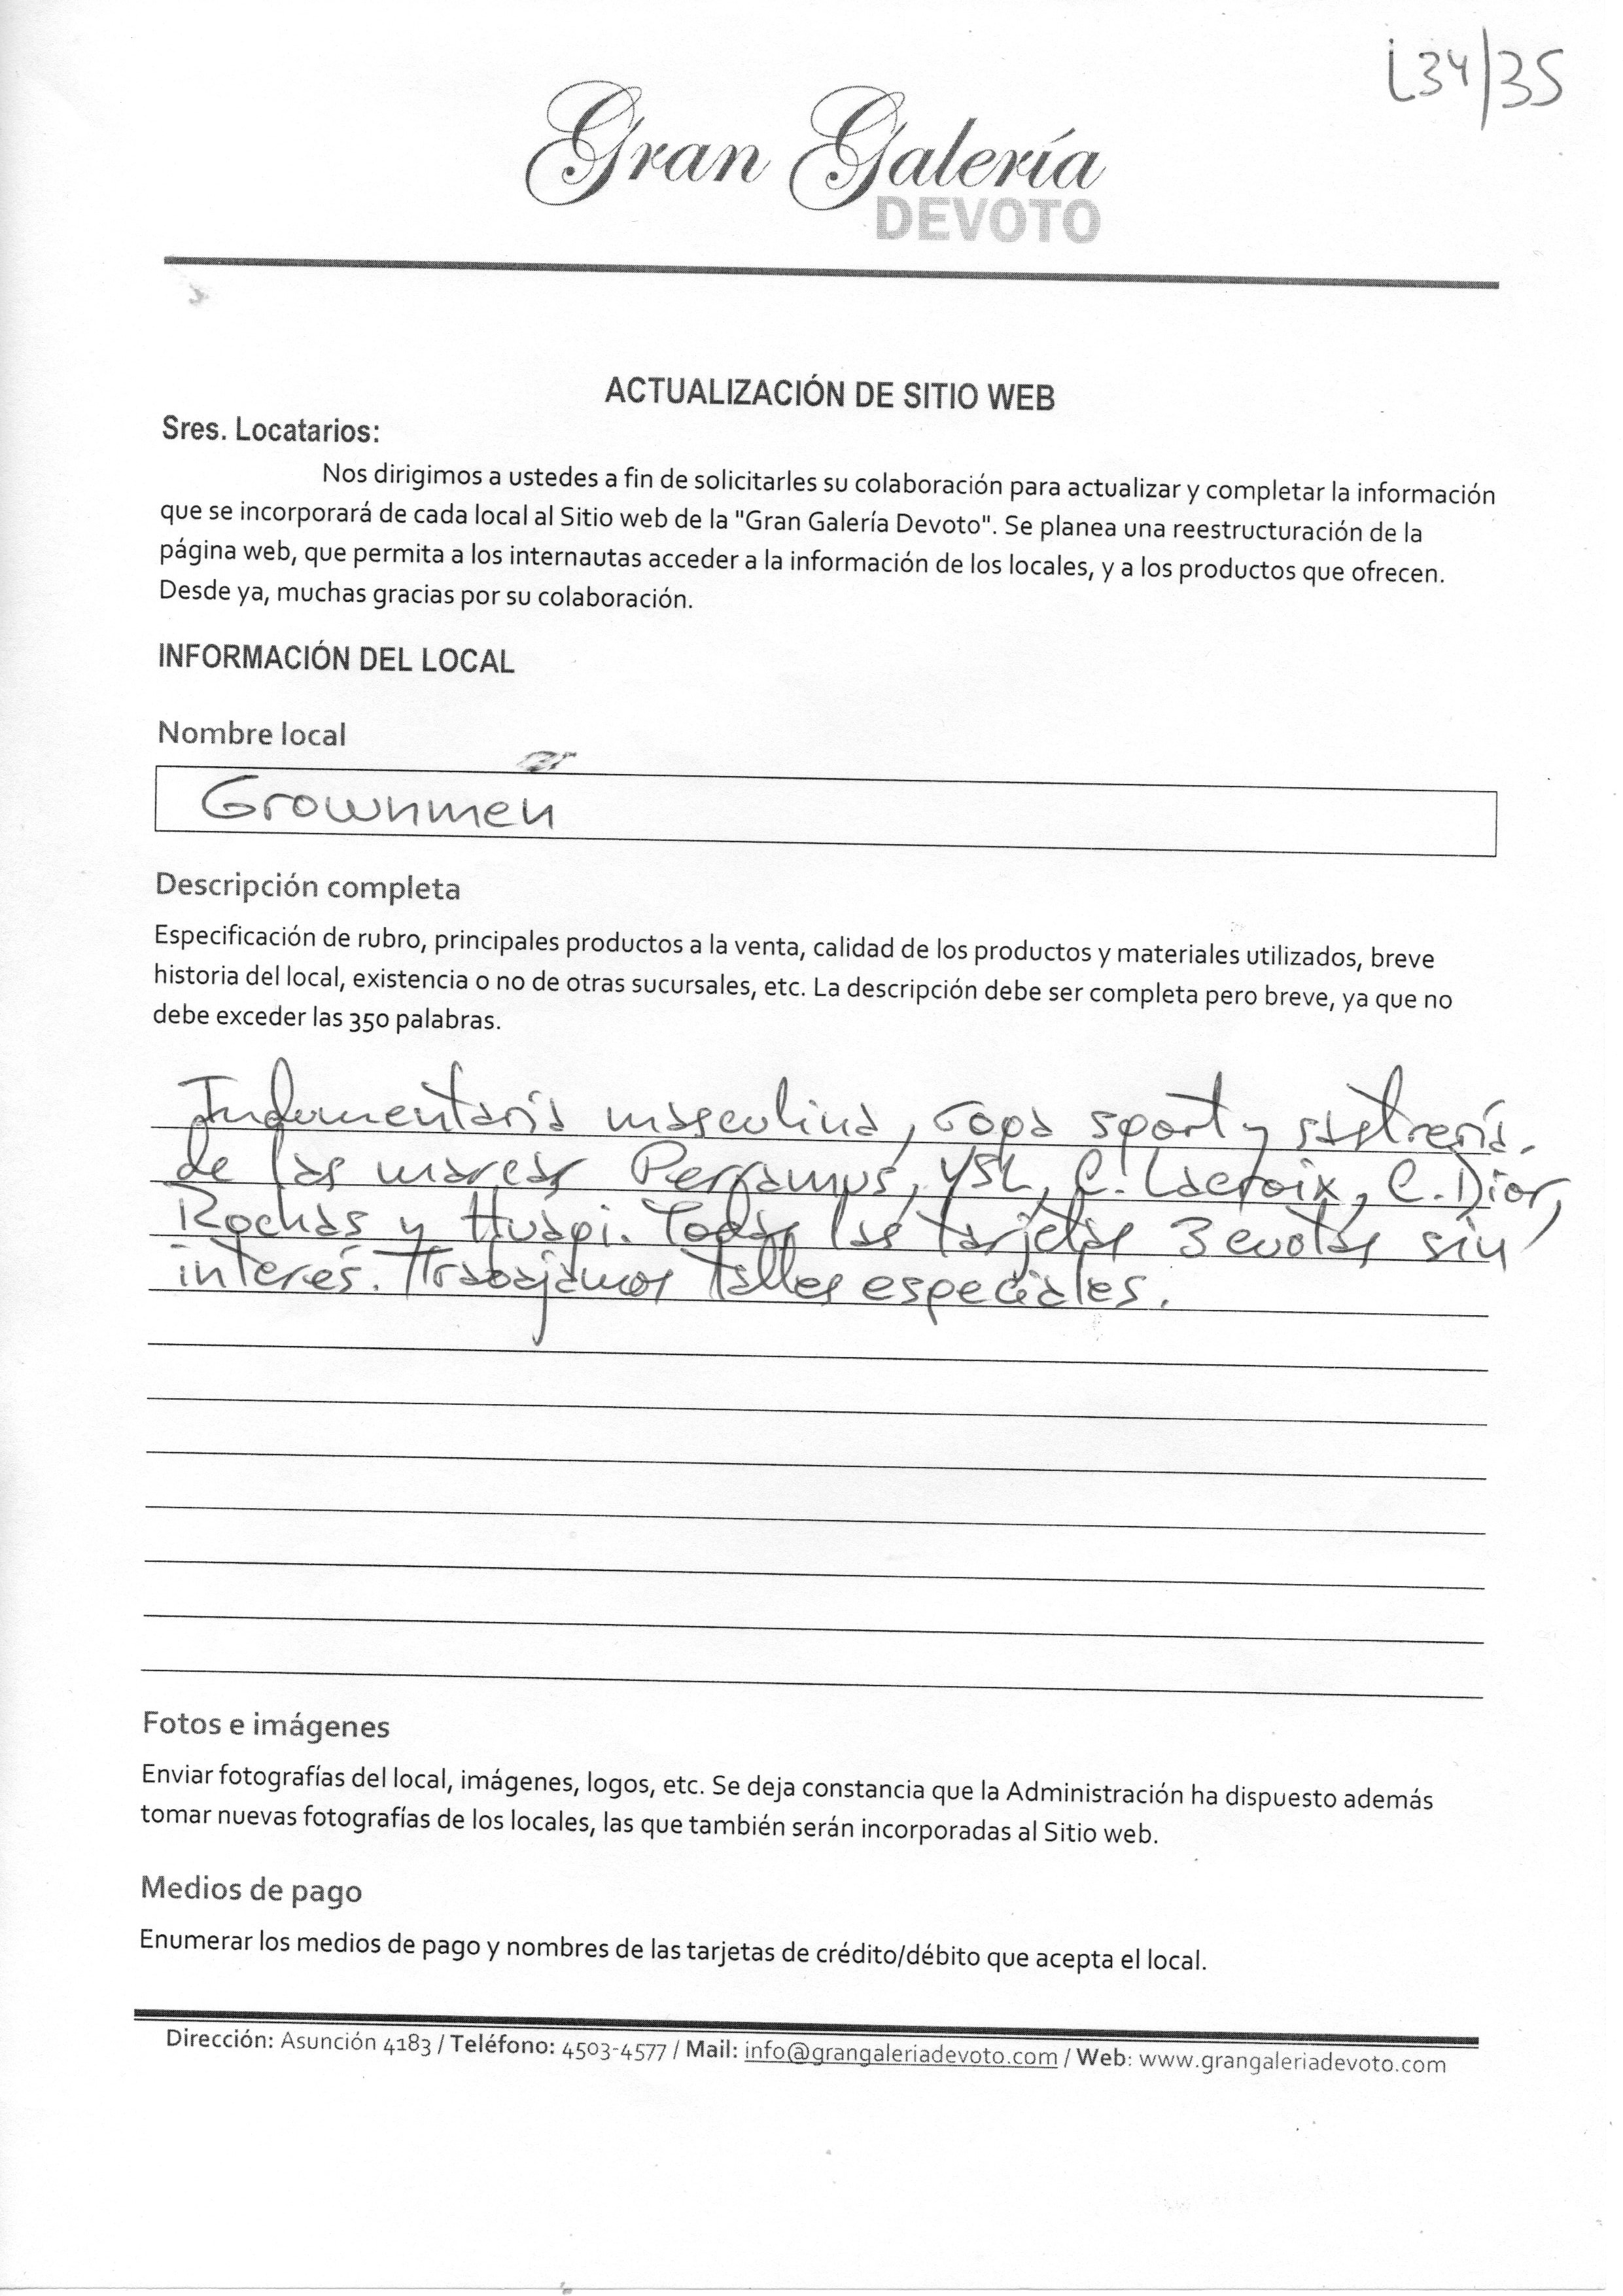 L34/35
Gran Galería
DEVOTO
ACTUALIZACIÓN DE SITIO WEB
Sres. Locatarios:
Nos dirigimos a ustedes a fin de solicitarles su colaboración para actualizar y completar la información
que se incorporará de cada local al Sitio web de la "Gran Galería Devoto". Se planea una reestructuración de la
página web, que permita a los internautas acceder a la información de los locales, y a los productos que ofrecen.
Desde ya, muchas gracias por su colaboración.
INFORMACIÓN DEL LOCAL
Nombre local
Grownmen
Descripción completa
Especificación de rubro, principales productos a la venta, calidad de los productos y materiales utilizados, breve
historia del local, existencia o no de otras sucursales, etc. La descripción debe ser completa pero breve, ya que no
debe exceder las 350 palabras.
Indumentaria masculina, ropa sport y sastrería.
de las marcas Perramus, YSL, C. Lacroix, C. Dior,
Rochas y Huapi. Todas las tarjetas 3 cuotas sin
interés. Trabajamos talles especiales.
Fotos e imágenes
Enviar fotografías del local, imágenes, logos, etc. Se deja constancia que la Administración ha dispuesto además
tomar nuevas fotografías de los locales, las que también serán incorporadas al Sitio web.
Medios de pago
Enumerar los medios de pago y nombres de las tarjetas de crédito/débito que acepta el local.
Dirección: Asunción 4183 / Teléfono: 4503-4577 / Mail: info@grangaleriadevoto.com / Web: www.grangaleriadevoto.com